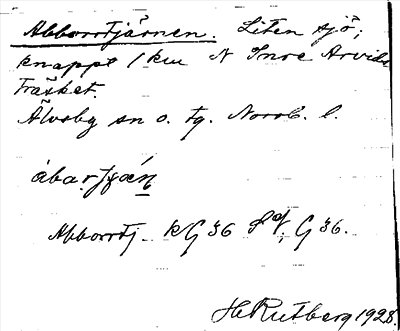 Abborrtjärnen. Liten sjö,
knappt 1 km N Inre Arvids
träsket.
Älvsby sn o. tg. Norrb. l.
Abborrtj. KG 36 G 36.
H Rutberg 1928.